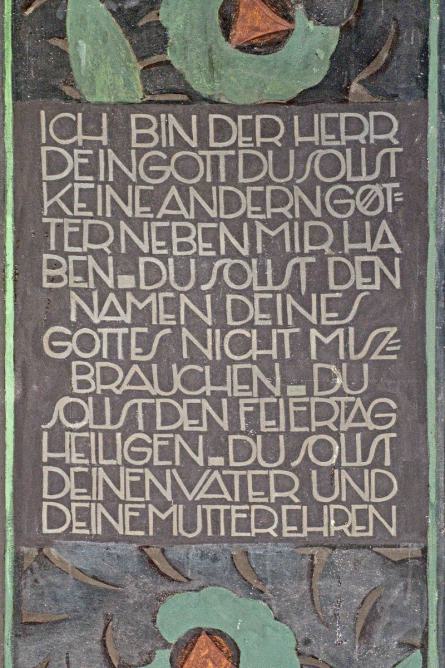 ICH BIN DER HERR
DEIN GOTT DU SOLLST
KEINE ANDERN GØT=
TER NEBEN MIR HA
BEN. DU SOLLST DEN
NAMEN DEINES
GOTTES NICHT MISZ=
BRAUCHEN. DU
SOLLST DEN FEIERTAG
HEILIGEN. DU SOLLST
DEINEN VATER UND
DEINE MUTTER EHREN